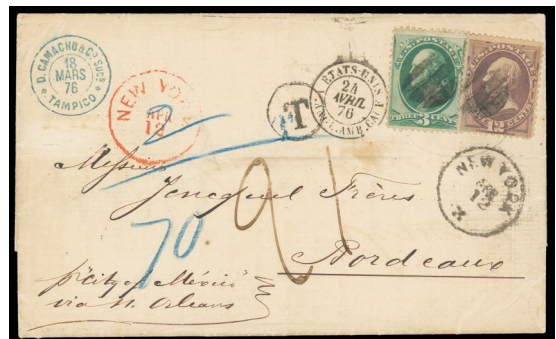 D. CAMACHO & Co. SUCS
18
MARS
76
TAMPICO
NEW YORK
APR
12
T
ETATS-UNIS
24
AVRIL
76
3
12
NEW YORK
2
Messieurs
Frères
Bordeaux
70
21
pr "City of México"
via N. Orleans